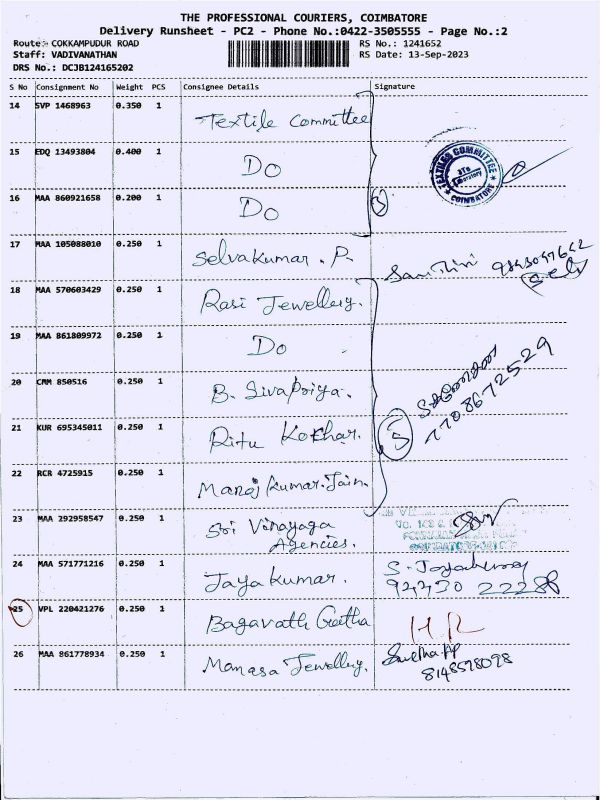 THE PROFESSIONAL COURIERS, COIMBATORE
Delivery Runsheet - PC2 - Phone No.:0422-3505555 - Page No.:2
Route: COKKAMPUDUR ROAD RS No.: 1241652
Staff: VADIVANATHAN RS Date: 13-Sep-2023
DRS No.: DC3B124165202
S No Consignment No Weight PCS Consignee Details Signature
14 SVP 1468963 0.350 1 Textile Committee
15 EDQ 13493804 0.400 1 Do
TEXTILES COMMITTEE
COIMBATORE
16 MAA 860921658 0.200 1 Do 3
17 MAA 105088010 0.250 1 Selvakumar . P.
18 MAA 570603429 0.250 1 Rasi Jewellery.
19 MAA 861809972 0.250 1 Do
20 CMM 850516 0.250 1 B. Sivapriya. 7708672529
21 KUR 695345011 0.250 1 Ritu Kothar. 5
22 RCR 4725915 0.250 1 Manoj Kumar. Jain.
23 MAA 292958547 0.250 1 Sri Vinayaga
Agencies.
24 MAA 571771216 0.250 1 Jayakumar. S. Jayakumar
25 VPL 220421276 0.250 1 Bagavath Geetha H.R
26 MAA 861778934 0.250 1 Manasa Jewellery.
8148578098